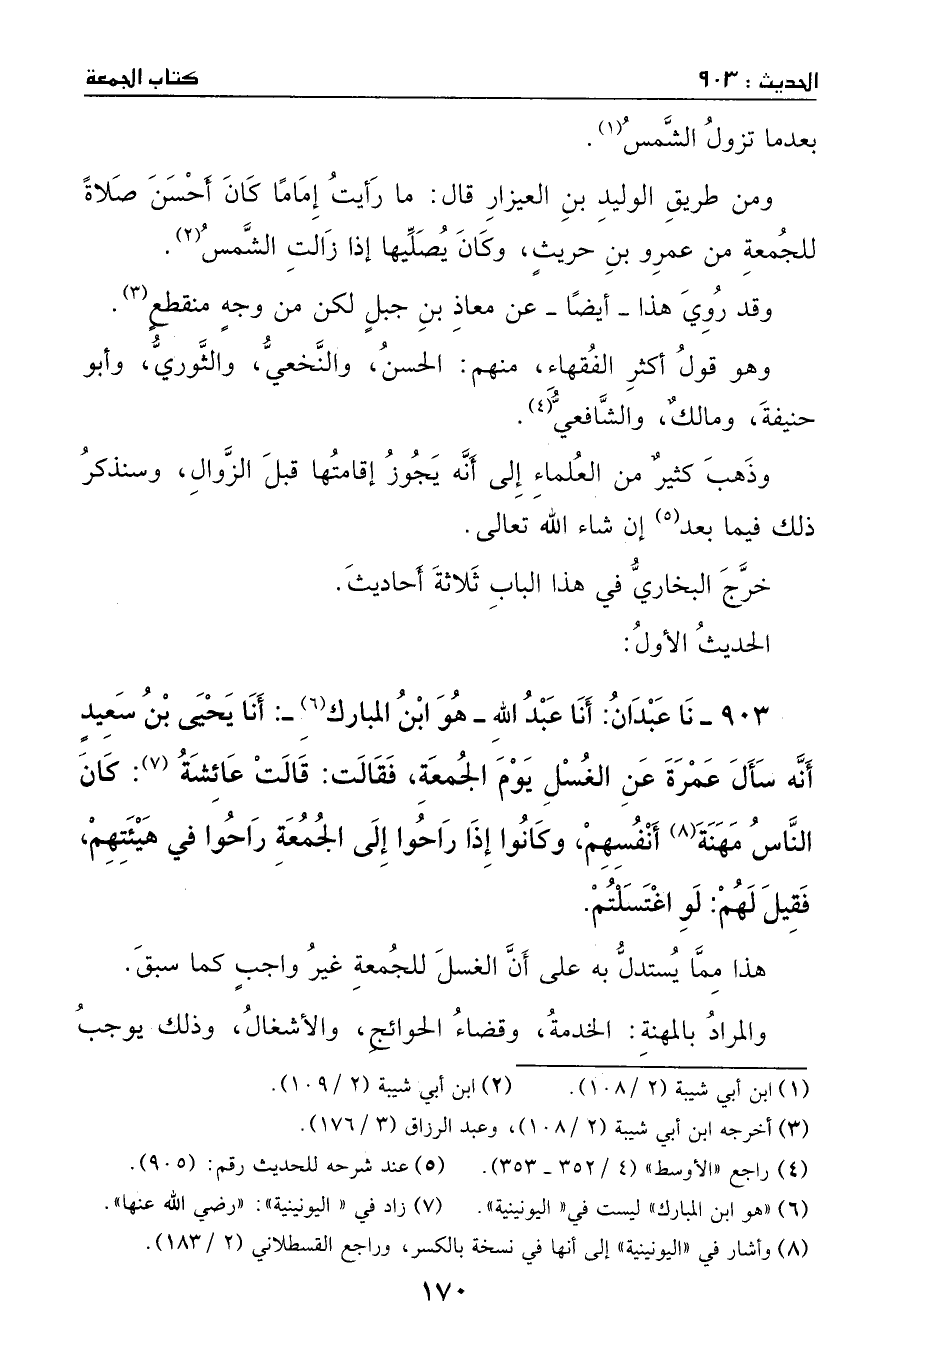 الحديث : ٩٠٣ كتاب الجمعة
بعدما تزولُ الشَّمسُ(١).
ومن طريقِ الوليدِ بنِ العيزارِ قال: ما رَأيتُ إمَامًا كَانَ أَحْسَنَ صَلاةً
للجُمعةِ من عمرِو بنِ حريثٍ، وكَانَ يُصَلِّيها إذا زَالتِ الشمسُ(٢).
وقد رُوِيَ هذا ـ أيضًا ـ عن معاذِ بنِ جبلٍ لكن من وجهٍ منقطعٍ(٣).
وهو قولُ أكثرِ الفُقهاءِ، منهم: الحسنُ، والنَّخعيُّ، والثَّوريُّ، وأبو
حنيفةَ، ومالكٌ، والشَّافعيُّ(٤).
وذَهبَ كثيرٌ من العُلماءِ إلى أَنَّه يَجُوزُ إقامتُها قبلَ الزَّوالِ، وسنذكرُ
ذلك فيما بعد(٥) إن شاء الله تعالى.
خرَّجَ البخاريُّ في هذا البابِ ثَلاثةَ أَحاديثَ.
الحديثُ الأولُ:
٩٠٣ ـ نَا عَبْدَانُ: أَنَا عَبْدُ اللهِ ـ هُوَ ابْنُ المباركِ(٦) ـ: أَنَا يَحْيَى بْنُ سَعِيدٍ
أَنَّه سَأَلَ عَمْرَةَ عَنِ الغُسْلِ يَوْمَ الجُمعَةِ، فقَالَت: قَالَتْ عَائشَةُ (٧): كَانَ
النَّاسُ مَهَنَةَ(٨) أَنْفُسِهِمْ، وكَانُوا إذَا رَاحُوا إِلَى الجُمُعَةِ رَاحُوا في هَيْئَتِهِمْ،
فَقِيلَ لَهُمْ: لَو اغْتَسَلْتُمْ.
هذا مِمَّا يُستدلُّ به على أَنَّ الغسلَ للجُمعةِ غيرُ واجبٍ كما سبقَ.
والمرادُ بالمهنةِ: الخدمةُ، وقضاءُ الحوائجِ، والأشغالُ، وذلك يوجبُ
(١) ابن أبي شيبة (٢ /١٠٨). (٢) ابن أبي شيبة (٢ /١٠٩).
(٣) أخرجه ابن أبي شيبة (٢ /١٠٨)، وعبد الرزاق (٣ /١٧٦).
(٤) راجع «الأوسط» (٤ / ٣٥٢ ـ ٣٥٣). (٥) عند شرحه للحديث رقم: (٩٠٥).
(٦) «هو ابن المبارك» ليست في« اليونينية». (٧) زاد في « اليونينية»: «رضي الله عنها».
(٨) وأشار في «اليونينية» إلى أنها في نسخة بالكسر، وراجع القسطلاني (٢ /١٨٣).
١٧٠